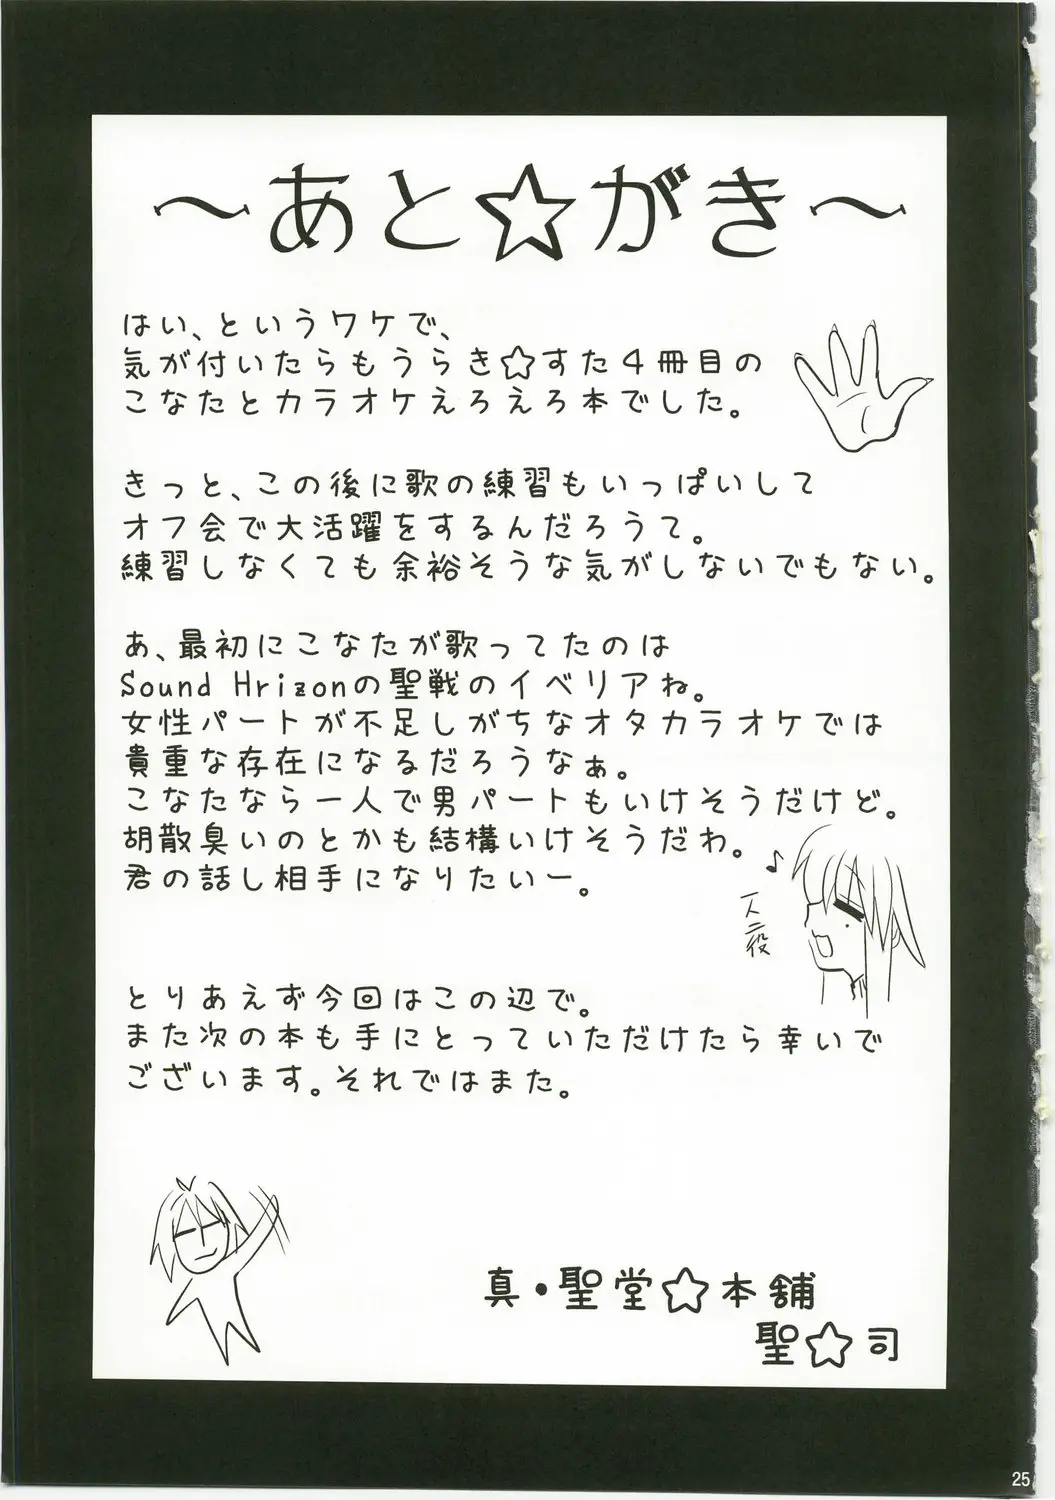 ～あと☆がき～
はい、というワケで、
気が付いたらもうらき☆すた４冊目の
こなたとカラオケえろえろ本でした。
きっと、この後に歌の練習もいっぱいして
オフ会で大活躍をするんだろうて。
練習しなくても余裕そうな気がしないでもない。
あ、最初にこなたが歌ってたのは
Sound Hrizonの聖戦のイベリアね。
女性パートが不足しがちなオタカラオケでは
貴重な存在になるだろうなぁ。
こなたなら一人で男パートもいけそうだけど。
胡散臭いのとかも結構いけそうだわ。
君の話し相手になりたいー。
♪
一人二役
とりあえず今回はこの辺で。
また次の本も手にとっていただけたら幸いで
ございます。それではまた。
真・聖堂☆本舗
聖☆司
25